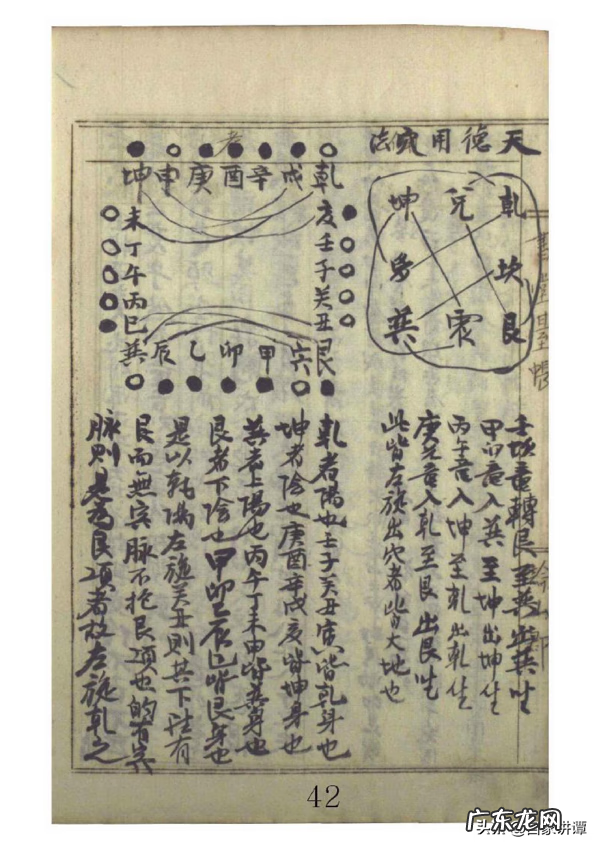 天德用威法
乾 兌 坤
坎 离
艮 震 巽
壬坎竜轉艮至巽出巽生
甲卯竜入巽至坤出坤生
丙午竜入坤至乾出乾生
庚兌竜入乾至艮出艮生
此皆左旋出穴者皆大地也
乾戌辛酉庚申坤
亥壬子癸丑艮
未丁午丙巳巽
寅甲卯乙辰
乾者陽也壬子癸丑寅皆乾身也
坤者陰也庚酉辛戌亥皆坤身也
巽者上陽也丙午丁未申皆巽身也
艮者下陰也甲卯乙辰巳皆艮身也
是以乾陽左旋癸丑則其下性有
艮而無寅脉不抱艮項也的有寅
脉則是為艮項者故左旋乾之
42
头条 @百家讲谭
广东龙网